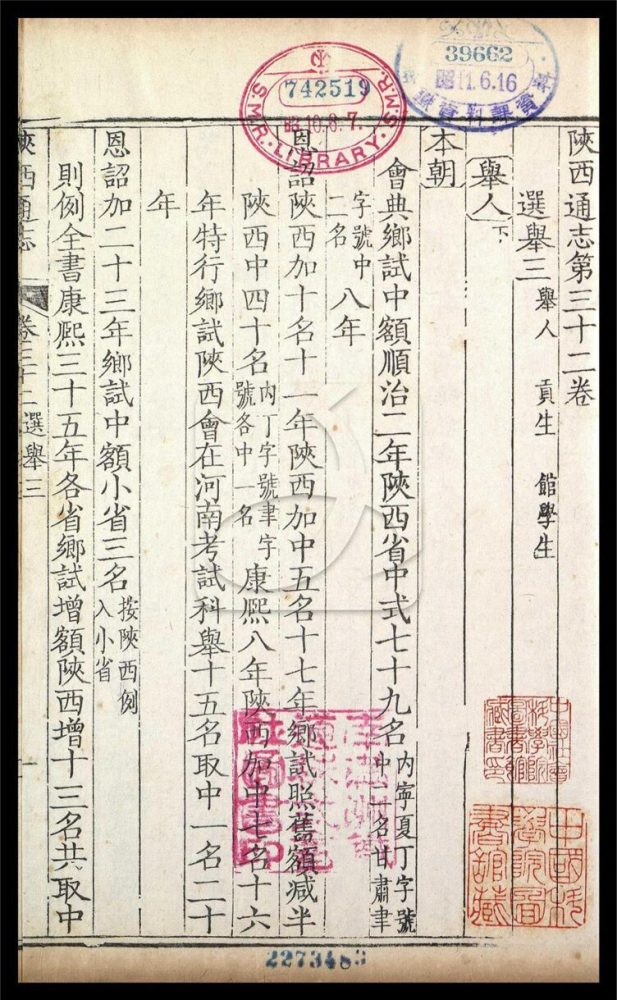 陝西通志第三十二卷
選舉三 舉人 貢生 館學生
舉人下
本朝
會典鄉試中額順治二年陝西省中式七十九名內寧夏丁字號中二名甘肅聿
字號中二名八年
恩詔陝西加十名十一年陝西加中五名十七年鄉試照舊額減半
陝西中四十名內丁字號聿字號各中一名康熙八年陝西加中七名十六
年特行鄉試陝西會在河南考試科舉十五名取中一名二十
年
恩詔加二十三年鄉試中額小省三名按陝西例入小省
則例全書康熙三十五年各省鄉試增額陝西增十三名共取中
陝西通志 卷三十二 選舉三 一
742519
S.M.R. LIBRARY. S.M.R.
昭10.8.7.
39662
昭11.6.16
中國科學院圖書館藏
2273483